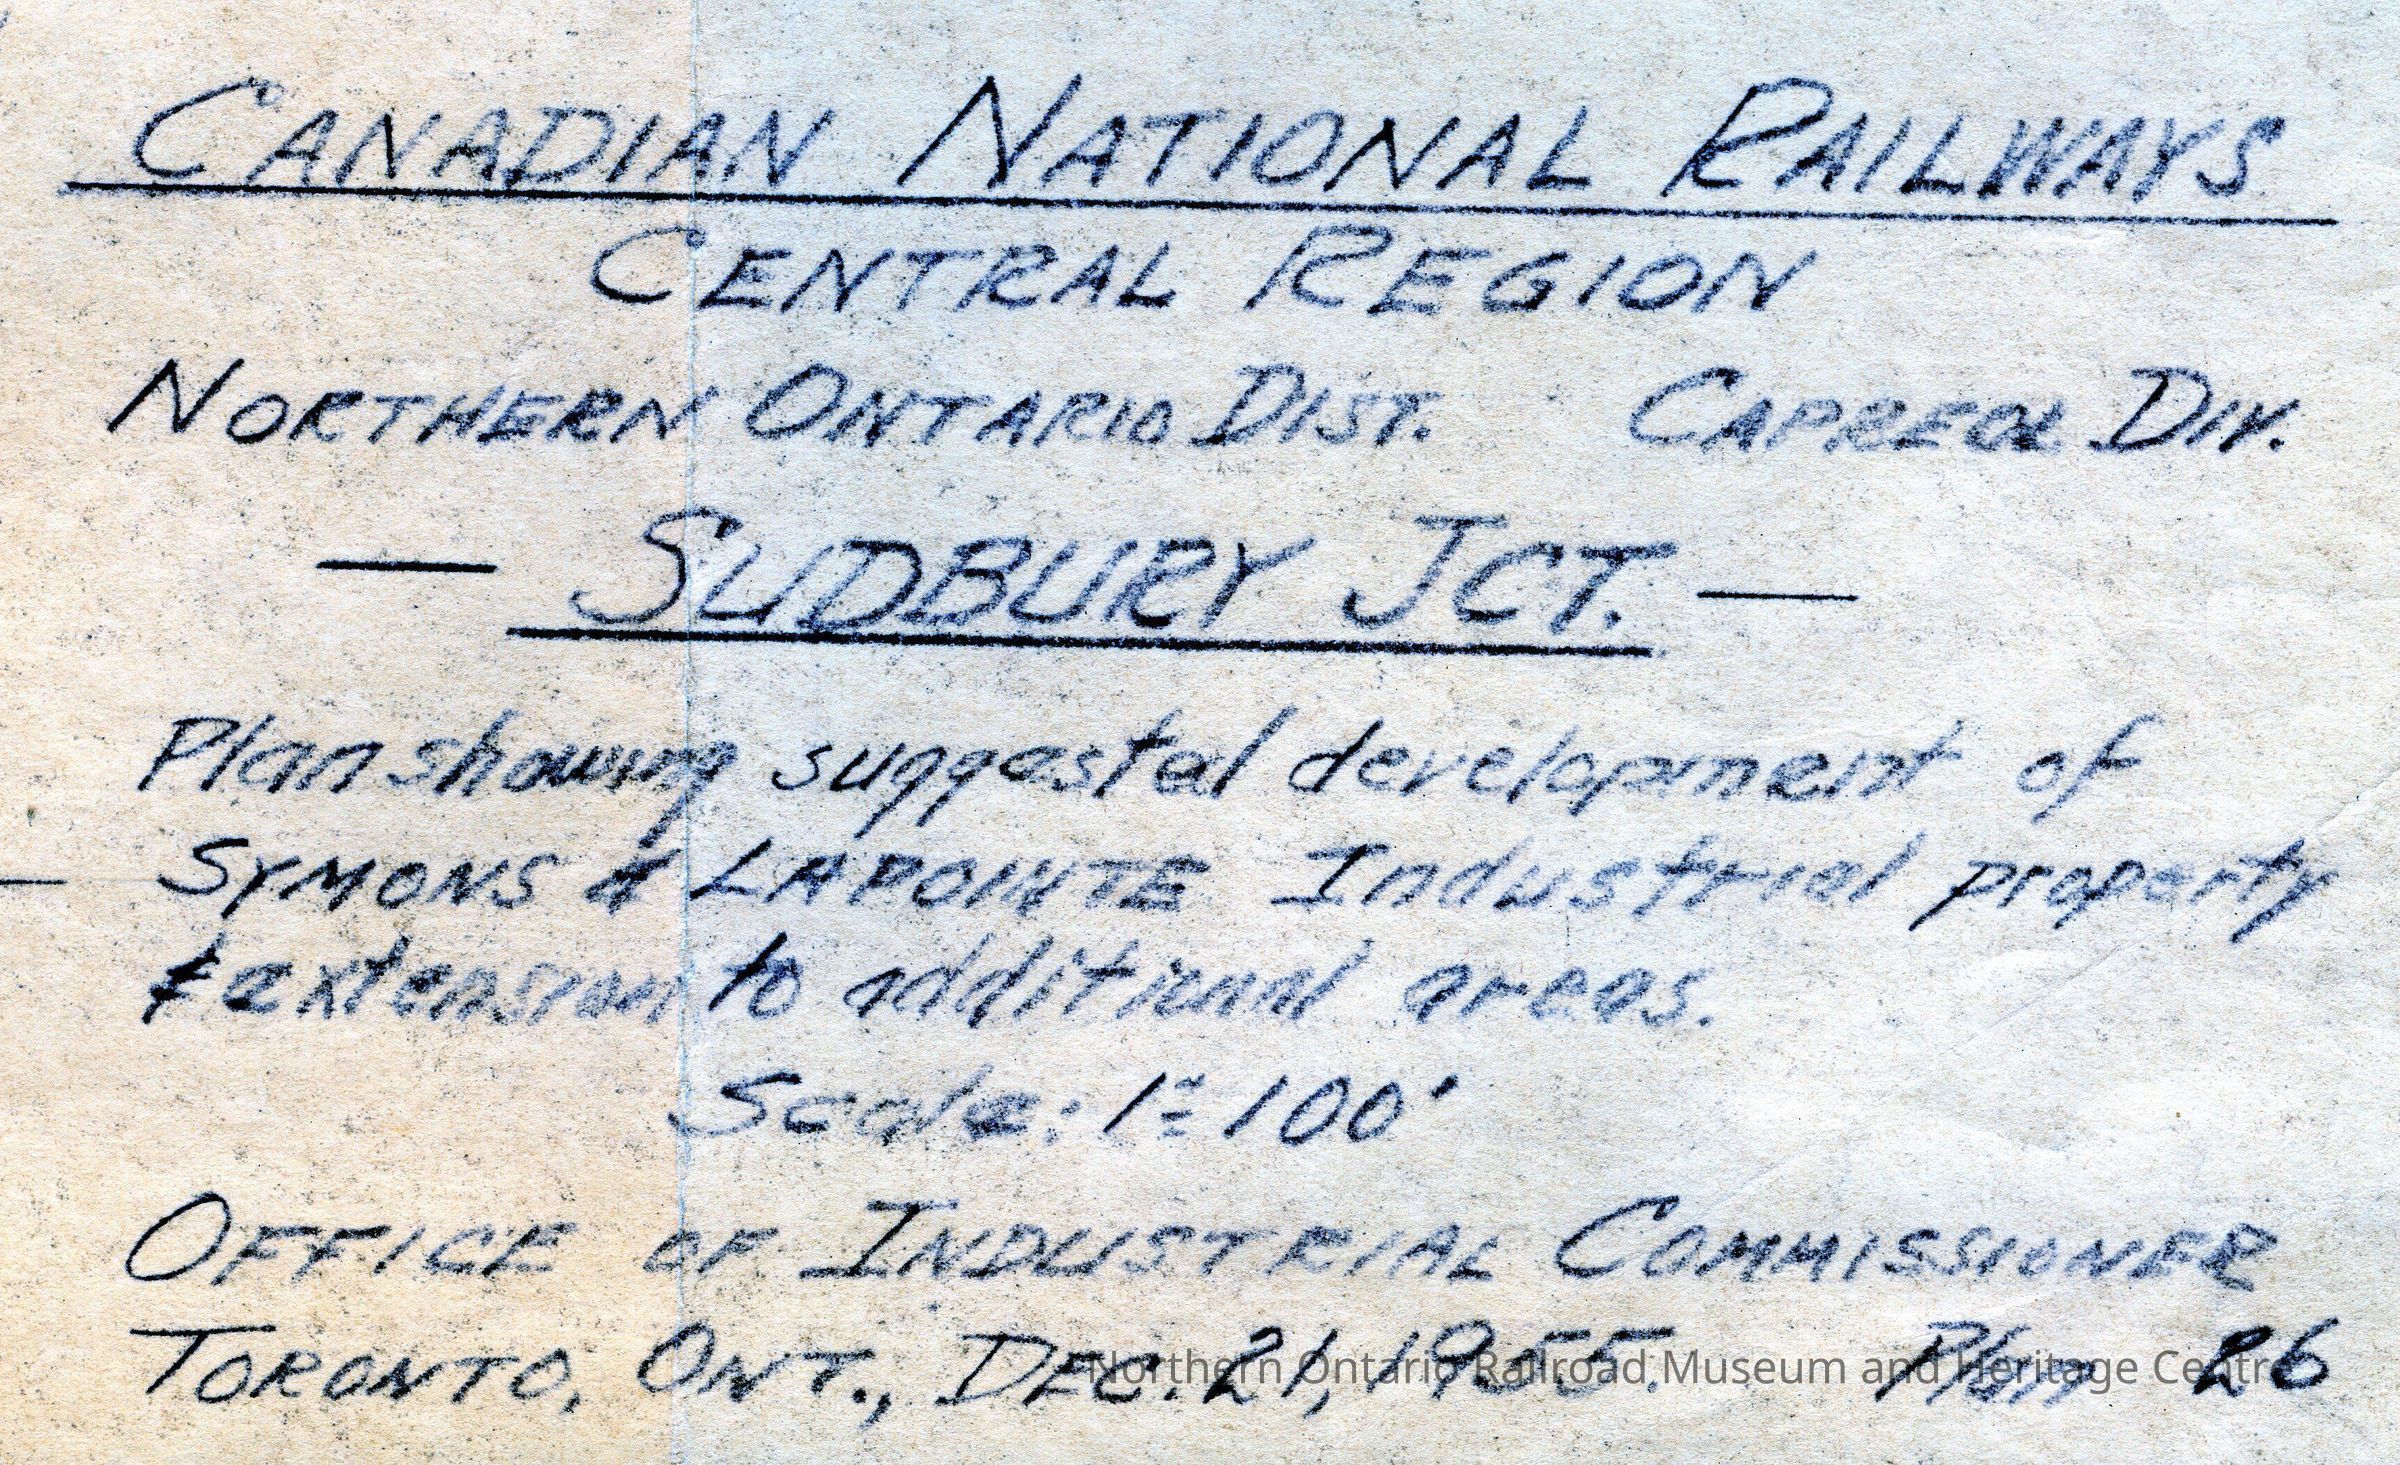 CANADIAN NATIONAL RAILWAYS
CENTRAL REGION
NORTHERN ONTARIO DIST. CAPREOL DIV.
— SUDBURY JCT. —
Plan showing suggested development of
SYMONS & LAPOINTE Industrial property
& extension to additional areas.
Scale: 1"= 100'
OFFICE OF INDUSTRIAL COMMISSIONER
TORONTO, ONT., DEC. 21, 1955. Plan 26
Northern Ontario Railroad Museum and Heritage Centre